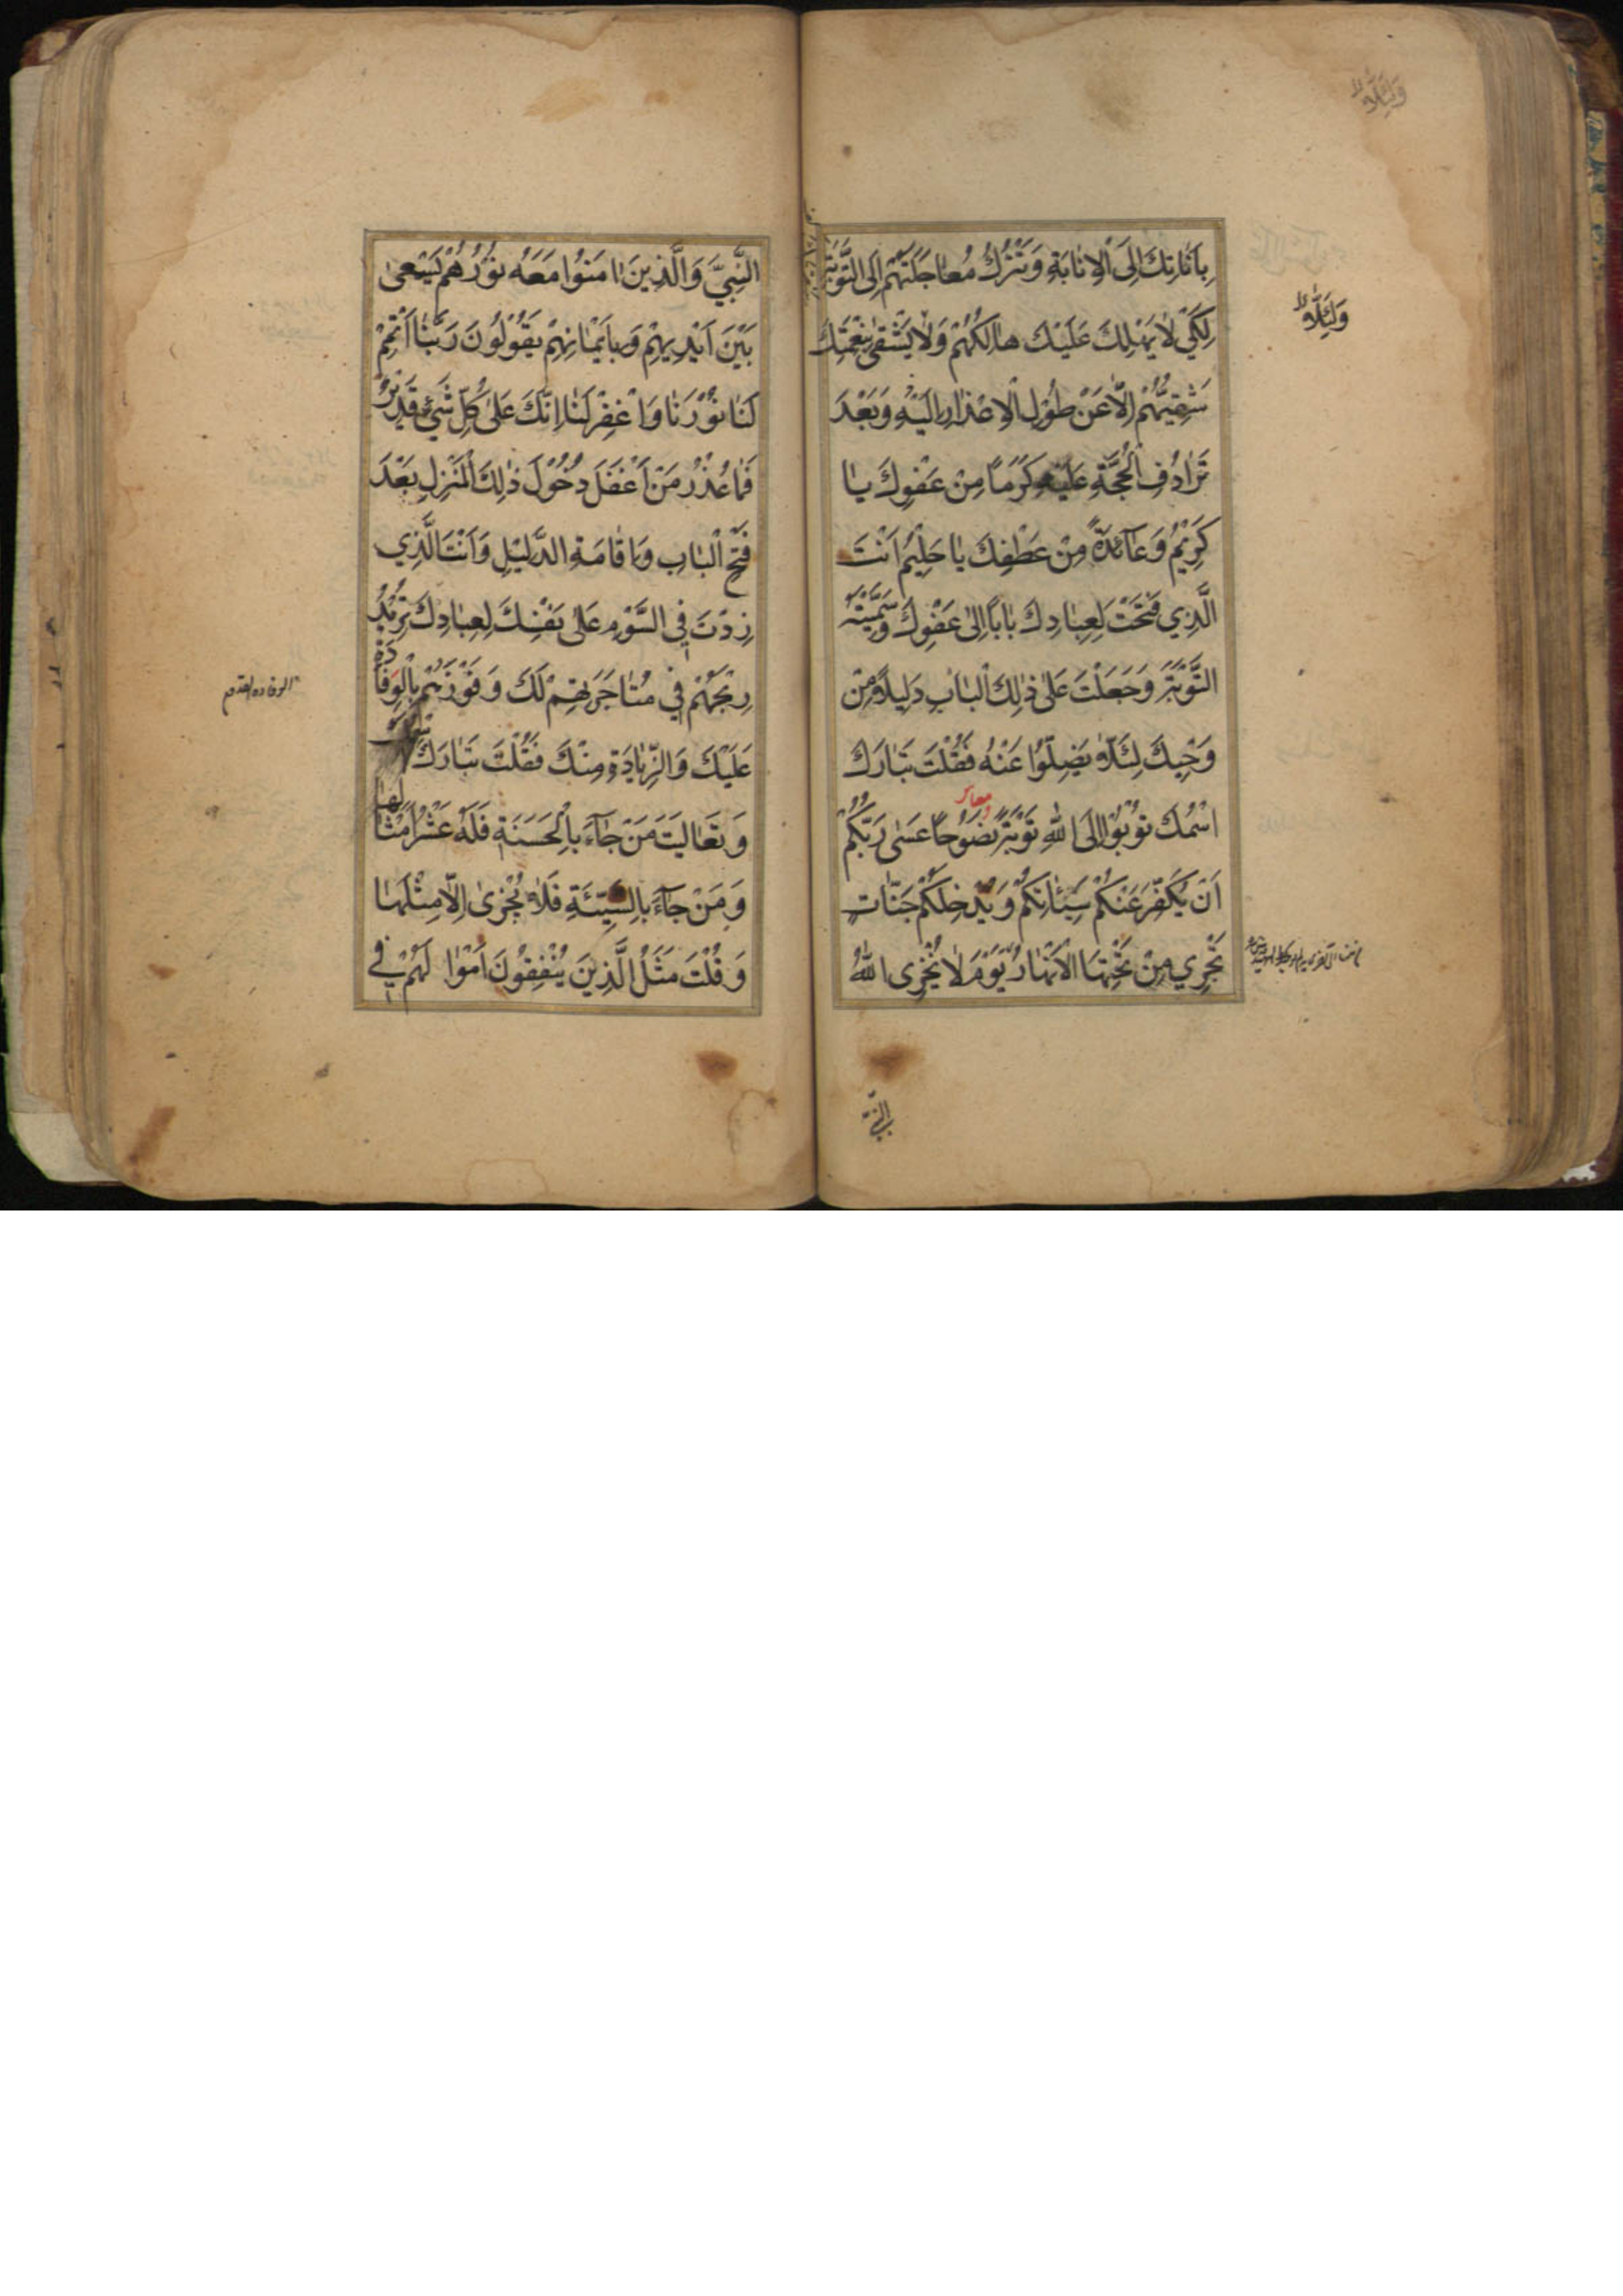 بِاَنَاتِكَ اِلَى الْاِنَابَةِ وَتَتْرُكُ مُعَاجَلَتَهُمْ اِلَى التَّوْبَةِ
لِكَيْ لَا يَهْلِكَ عَلَيْكَ هَالِكُهُمْ وَلَا يَشْقٰى بِنِعْمَتِكَ
شَقِيُّهُمْ اِلَّا عَنْ طُوْلِ الْاِعْذَارِ اِلَيْهِ وَبَعْدَ
تَرَادُفِ الْحُجَّةِ عَلَيْهِ كَرَمًا مِنْ عَفْوِكَ يَا
كَرِيْمُ وَعَآئِدَةً مِنْ عَطْفِكَ يَا حَلِيْمُ اَنْتَ
الَّذِي فَتَحْتَ لِعِبَادِكَ بَابًا اِلٰى عَفْوِكَ وَسَمَّيْتَهُ
التَّوْبَةَ وَجَعَلْتَ عَلٰى ذٰلِكَ الْبَابِ دَلِيلًا مِنْ
وَحْيِكَ لِئَلَّا يَضِلُّوْا عَنْهُ فَقُلْتَ تَبَارَكَ
اسْمُكَ تُوْبُوْا اِلَى اللّٰهِ تَوْبَةً نَصُوْحًا عَسٰى رَبُّكُمْ
اَنْ يُكَفِّرَ عَنْكُمْ سَيِّئَاتِكُمْ وَيُدْخِلَكُمْ جَنَّاتٍ
تَجْرِي مِنْ تَحْتِهَا الْاَنْهَارُ يَوْمَ لَا يُخْزِى اللّٰهُ
وَلِئَلَّا
وَلِئَلَّا
النَّبِيَّ
النَّبِيَّ وَالَّذِينَ اٰمَنُوْا مَعَهُ نُوْرُهُمْ يَسْعٰى
بَيْنَ اَيْدِيهِمْ وَبِاَيْمَانِهِمْ يَقُوْلُوْنَ رَبَّنَا اَتْمِمْ
لَنَا نُوْرَنَا وَاغْفِرْ لَنَا اِنَّكَ عَلٰى كُلِّ شَيْءٍ قَدِيْرٌ
فَمَا عُذْرُ مَنْ اَغْفَلَ دُخُوْلَ ذٰلِكَ الْمَنْزِلِ بَعْدَ
فَتْحِ الْبَابِ وَاِقَامَةِ الدَّلِيْلِ وَاَنْتَ الَّذِي
زِدْتَ فِي السَّوْمِ عَلٰى نَفْسِكَ لِعِبَادِكَ تُرِيْدُ
رِبْحَهُمْ فِي مُتَاجَرَتِهِمْ لَكَ وَفَوْزَهُمْ بِالْوِفَادَةِ
عَلَيْكَ وَالزِّيَادَةِ مِنْكَ فَقُلْتَ تَبَارَكَ اسْمُكَ
وَتَعَالَيْتَ مَنْ جَآءَ بِالْحَسَنَةِ فَلَهُ عَشْرُ اَمْثَالِهَا
وَمَنْ جَآءَ بِالسَّيِّئَةِ فَلَا يُجْزٰى اِلَّا مِثْلَهَا
وَقُلْتَ مَثَلُ الَّذِينَ يُنْفِقُوْنَ اَمْوَالَهُمْ فِي